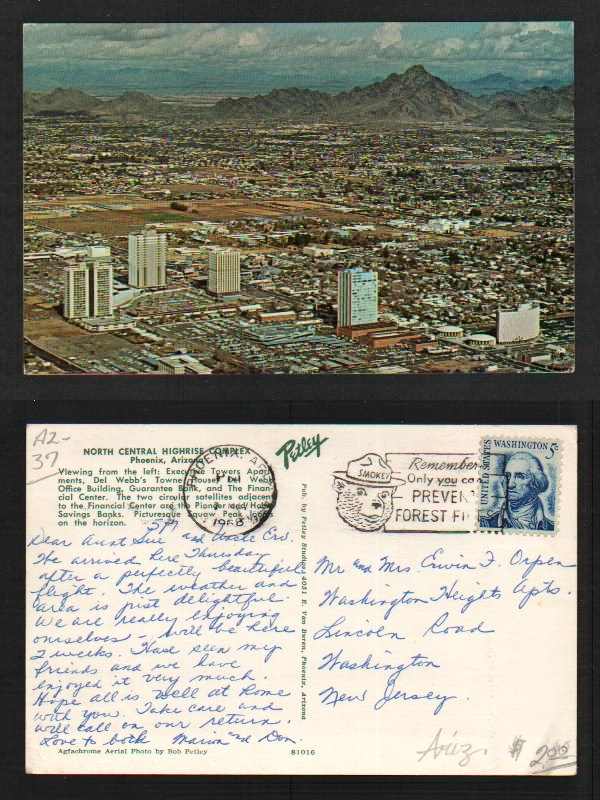 AZ-
37
NORTH CENTRAL HIGHRISE COMPLEX
Phoenix, Arizona
Viewing from the left: Executive Towers Apart-
ments, Del Webb's Towne House, Del Webb
Office Building, Guarantee Bank, and The Finan-
cial Center. The two circular satellites adjacent
to the Financial Center are the Pioneer and Home
Savings Banks. Picturesque Squaw Peak looms
on the horizon.
Dear Aunt Sue and Uncle Erv.
We arrived here Thursday
after a perfectly beautiful
flight. The weather and
area is just delightful.
We are really enjoying
ourselves - will be here
2 weeks. Have seen my
friends and we have
enjoyed it very much.
Hope all is well at home
with you. Take care and
will call on our return.
Love to both Marion and Don.
Agfachrome Aerial Photo by Bob Petley
81016
Petley
Pub. by Petley Studios, 4051 E. Van Buren, Phoenix, Arizona
PHOENIX, A
PM
1968
SMOKEY
Remember
Only you ca
PREVEN
FOREST FI
UNITED STATES
WASHINGTON 5c
Mr and Mrs Erwin F. Orpen
Washington Heights Apts.
Lincoln Road
Washington
New Jersey.
Ariz.
$2.00